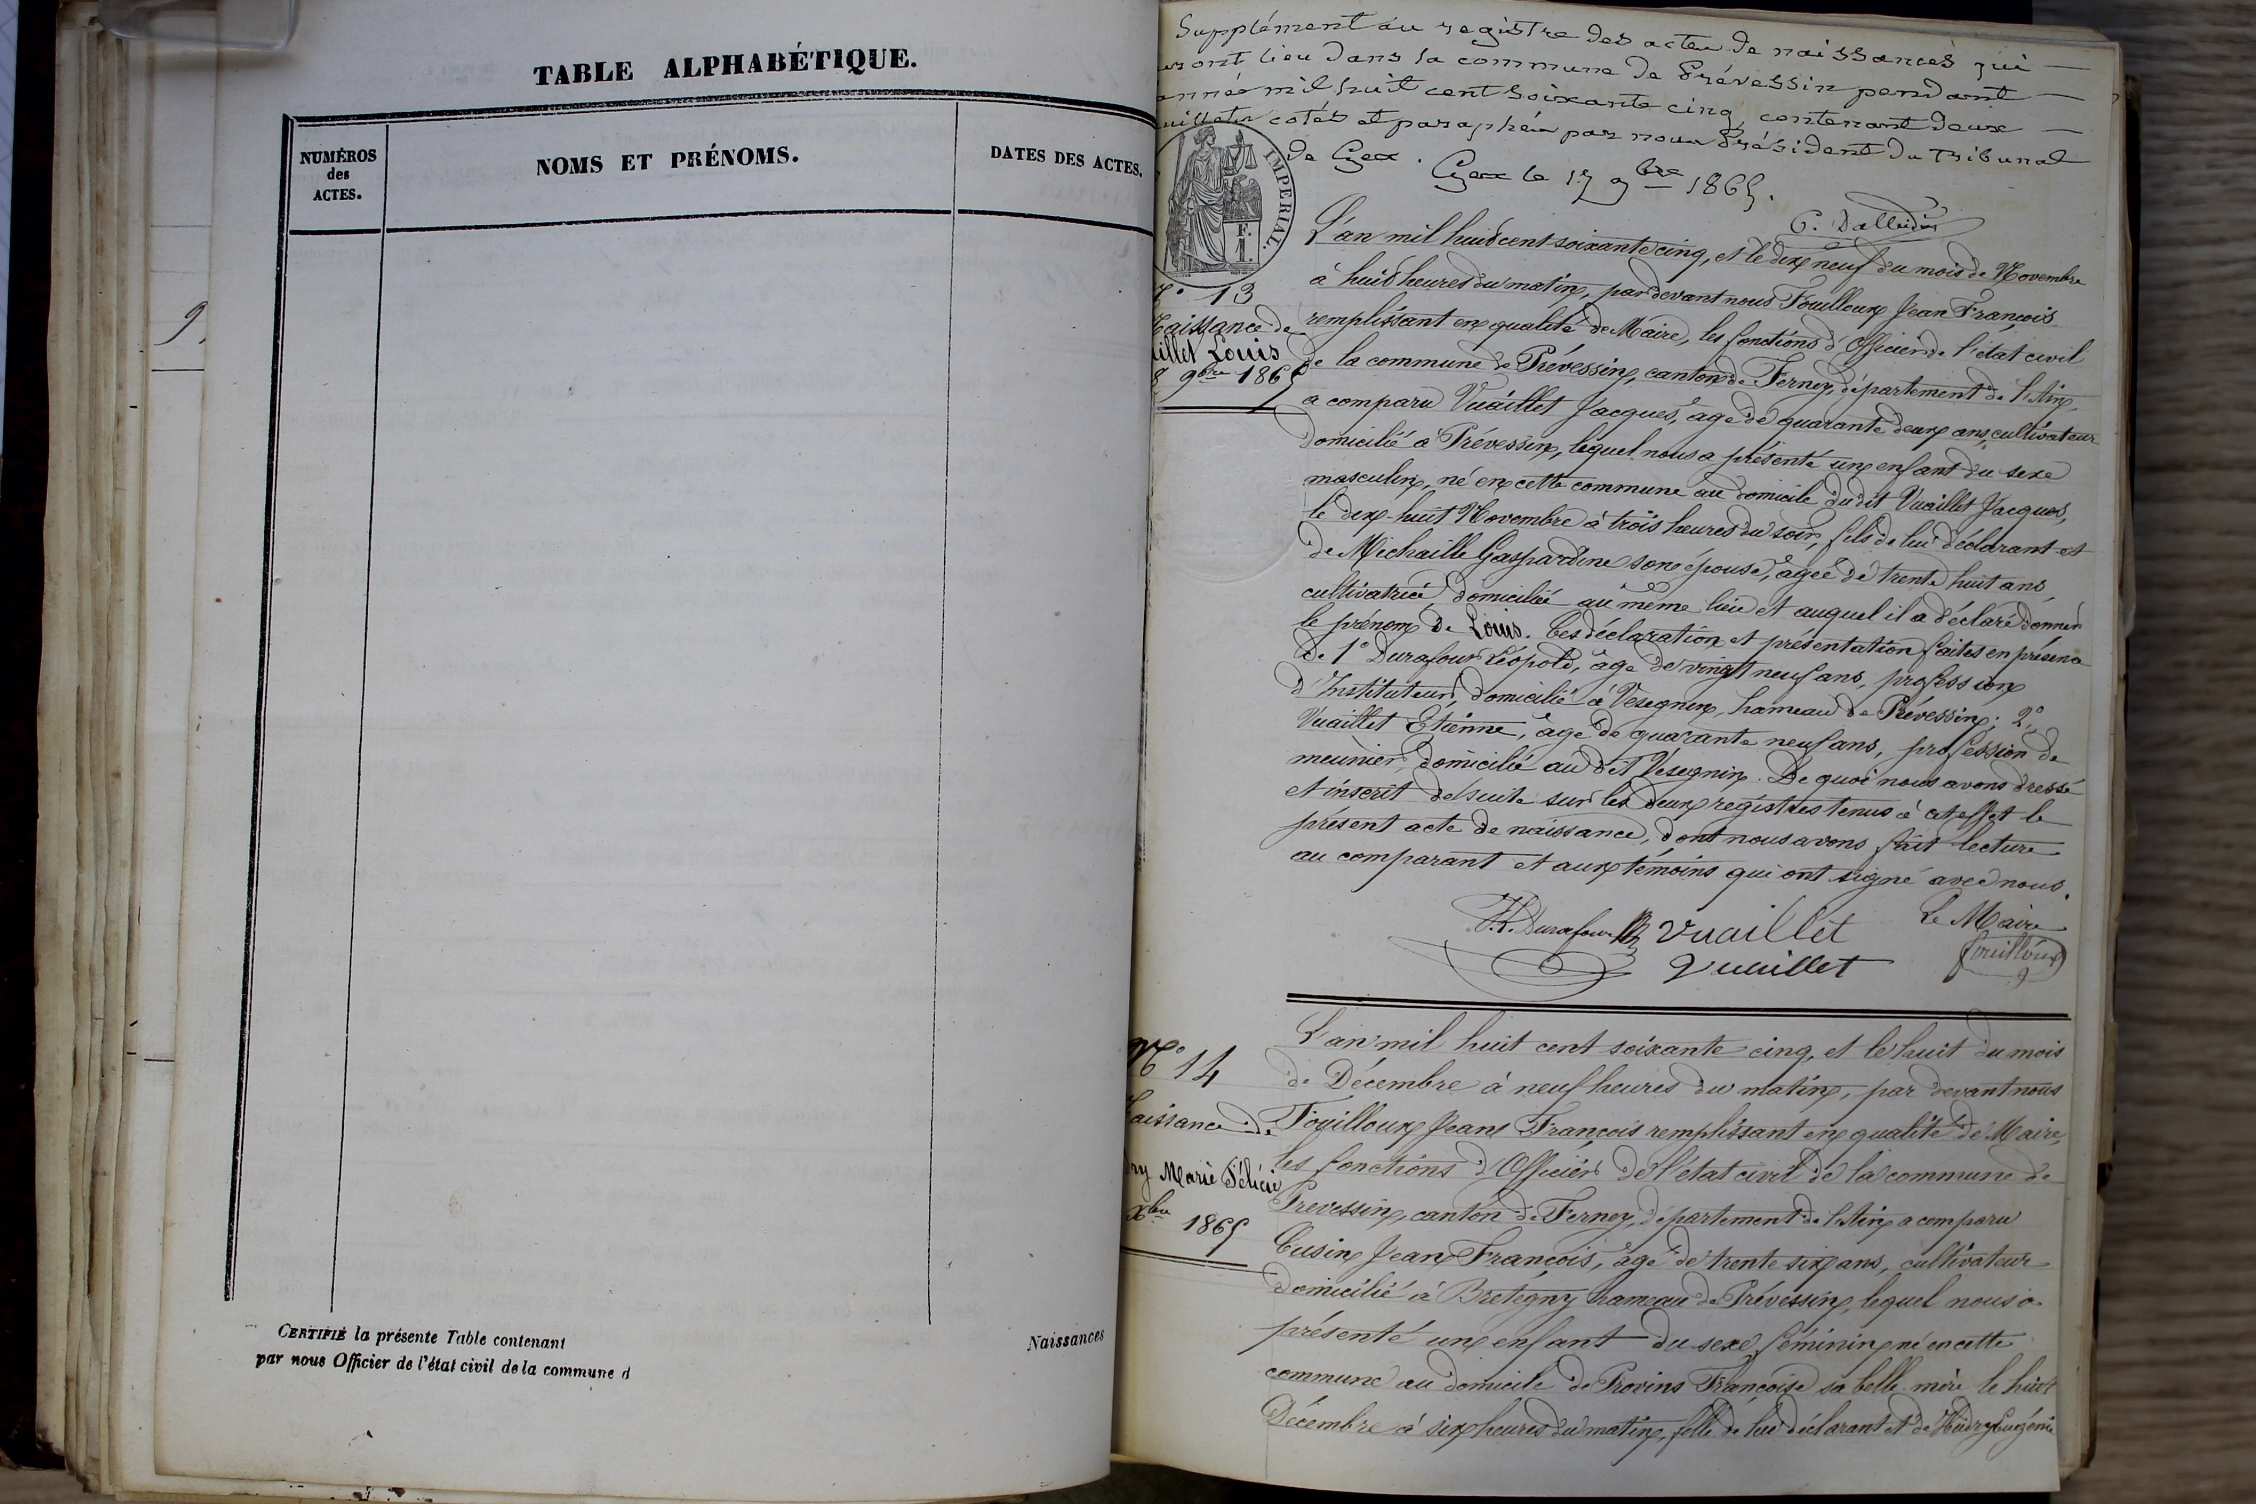 TABLE ALPHABÉTIQUE.
NUMÉROS
des
ACTES.
NOMS ET PRÉNOMS.
DATES DES ACTES.
9.
CERTIFIÉ la présente Table contenant
Naissances
par nous Officier de l'état civil de la commune d
Supplément au registre des actes de naissances qui
ont lieu dans la commune de Prévessin pendant
année mil huit cent soixante cinq, contenant deux
cotés et paraphés par nous Président du Tribunal
de Gex. Gex le 17 9bre 1865.
IMPERIAL.
F.
1.
N° 13
Naissance de
Louis
9bre 1865
L'an mil huit cent soixante cinq, et le dix neuf du mois de Novembre
à huit heures du matin, par devant nous Fouilloux Jean François
remplissant en qualité de Maire, les fonctions d'Officier de l'état civil
de la commune de Prévessin, canton de Ferney, département de l'Ain,
a comparu Vuaillet Jacques, âgé de quarante deux ans, cultivateur
domicilié à Prévessin, lequel nous a présenté un enfant du sexe
masculin, né en cette commune au domicile du dit Vuaillet Jacques,
le dix-huit Novembre à trois heures du soir, fils de lui déclarant et
de Michaille Gaspardine son épouse, âgée de trente huit ans,
cultivatrice, domiciliée au même lieu et auquel il a déclaré donner
le prénom de Louis. Ces déclaration et présentation faites en présence
de 1° Durafour Léopold, âgé de vingt neuf ans, profession
d'Instituteur, domicilié à Vésegnin, hameau de Prévessin; 2°
Vuaillet Etienne, âgé de quarante neuf ans, profession de
meunier, domicilié au dit Vésegnin. De quoi nous avons dressé
et inscrit de suite sur les deux registres tenus à cet effet le
présent acte de naissance, dont nous avons fait lecture
au comparant et aux témoins qui ont signé avec nous.
Durafour Vuaillet Le Maire
Vuaillet Fouilloux
N° 14
Naissance de
Marie Félicie
Xbre 1865
L'an mil huit cent soixante cinq, et le huit du mois
de Décembre à neuf heures du matin, par devant nous
Fouilloux Jean François remplissant en qualité de Maire,
les fonctions d'Officier de l'état civil de la commune de
Prevessin, canton de Ferney, département de l'Ain a comparu
Cusin Jean François, âgé de trente six ans, cultivateur
domicilié à Bretigny hameau de Prévessin, lequel nous a
présenté un enfant du sexe féminin né en cette
commune au domicile de Provins Françoise sa belle mère le huit
Décembre à six heures du matin, fille de lui déclarant et de Hudry Eugénie